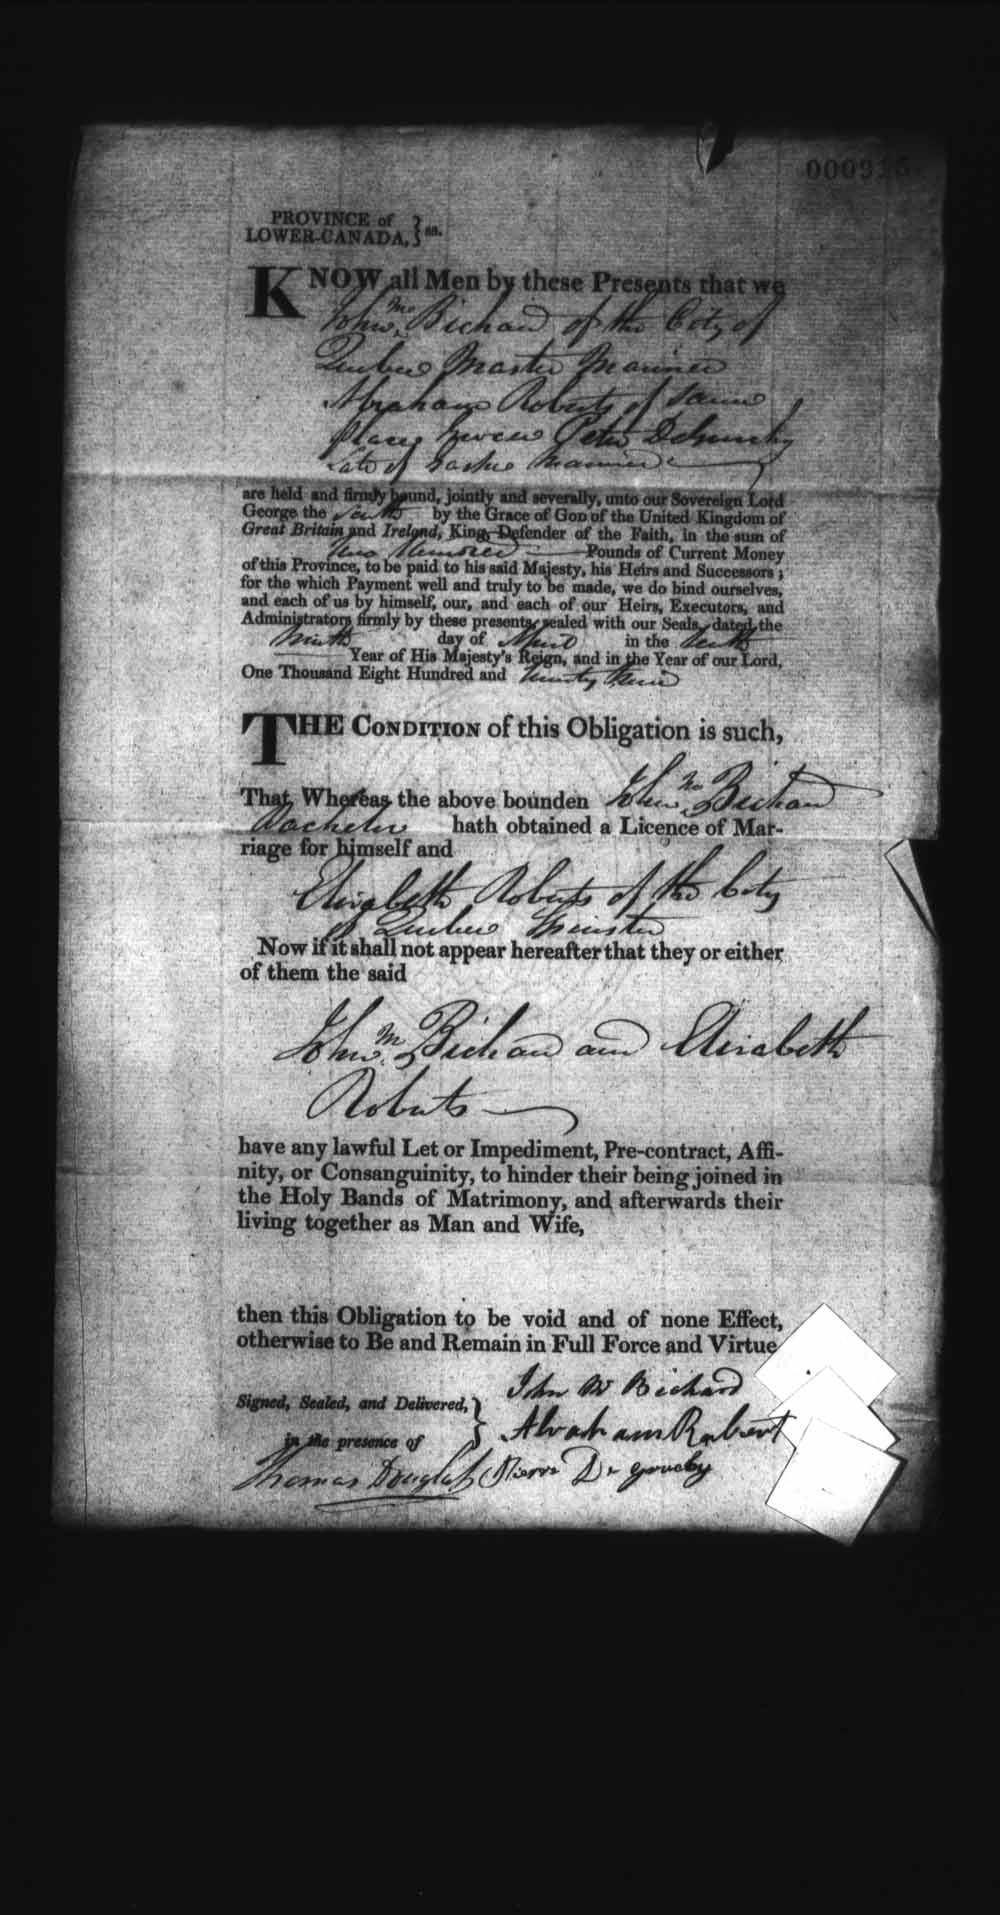 PROVINCE of
LOWER-CANADA, } ss.
KNOW all Men by these Presents that we
John Wm. Bichard of the City of
Quebec Master Mariner
Abraham Roberts of same
place Grocer Peter
Late of Gaspe Mariner
are held and firmly bound, jointly and severally, unto our Sovereign Lord
George the fourth by the Grace of GOD of the United Kingdom of
Great Britain and Ireland, King, Defender of the Faith, in the sum of
Two Hundred Pounds of Current Money
of this Province, to be paid to his said Majesty, his Heirs and Successors;
for the which Payment well and truly to be made, we do bind ourselves,
and each of us by himself, our, and each of our Heirs, Executors, and
Administrators firmly by these presents, sealed with our Seals, dated the
Ninth day of April in the tenth
Year of His Majesty's Reign, and in the Year of our Lord,
One Thousand Eight Hundred and twenty Nine
THE CONDITION of this Obligation is such,
That Whereas the above bounden John Wm. Bichard
Bachelor hath obtained a Licence of Mar-
riage for himself and
Elizabeth Roberts of the City
of Quebec Spinster
Now if it shall not appear hereafter that they or either
of them the said
John Wm. Bichard and Elizabeth
Roberts
have any lawful Let or Impediment, Pre-contract, Affi-
nity, or Consanguinity, to hinder their being joined in
the Holy Bands of Matrimony, and afterwards their
living together as Man and Wife,
then this Obligation to be void and of none Effect,
otherwise to Be and Remain in Full Force and Virtue
John W Bichard
Signed, Sealed, and Delivered,
Abraham Robert
in the presence of
Thomas Douglas Pierre De